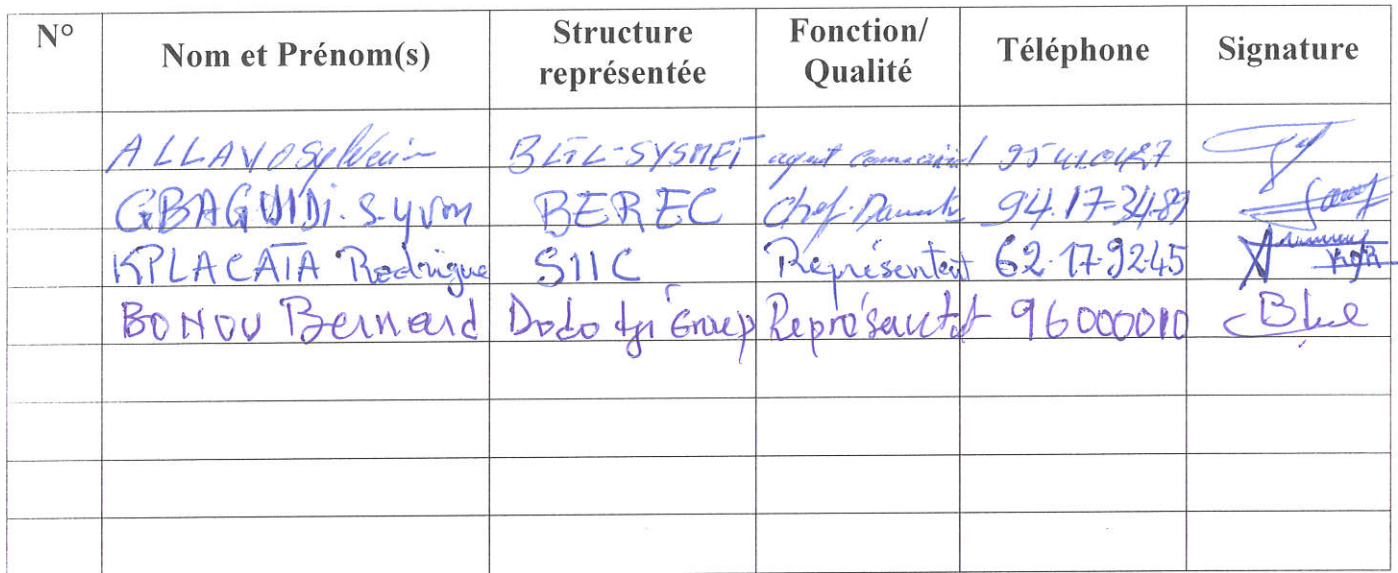 N° Nom et Prénom(s) Structure représentée Fonction/ Qualité Téléphone Signature
ALLAVO Sylvain BTL-SYSMET agent commercial
GBAGUIDI. S. yvon BEREC Chef 94.17-34-89
KPLACATA Rodrigue SIIC Représentant 62-17-92-45
BONOU Bernard Représentant 96000010